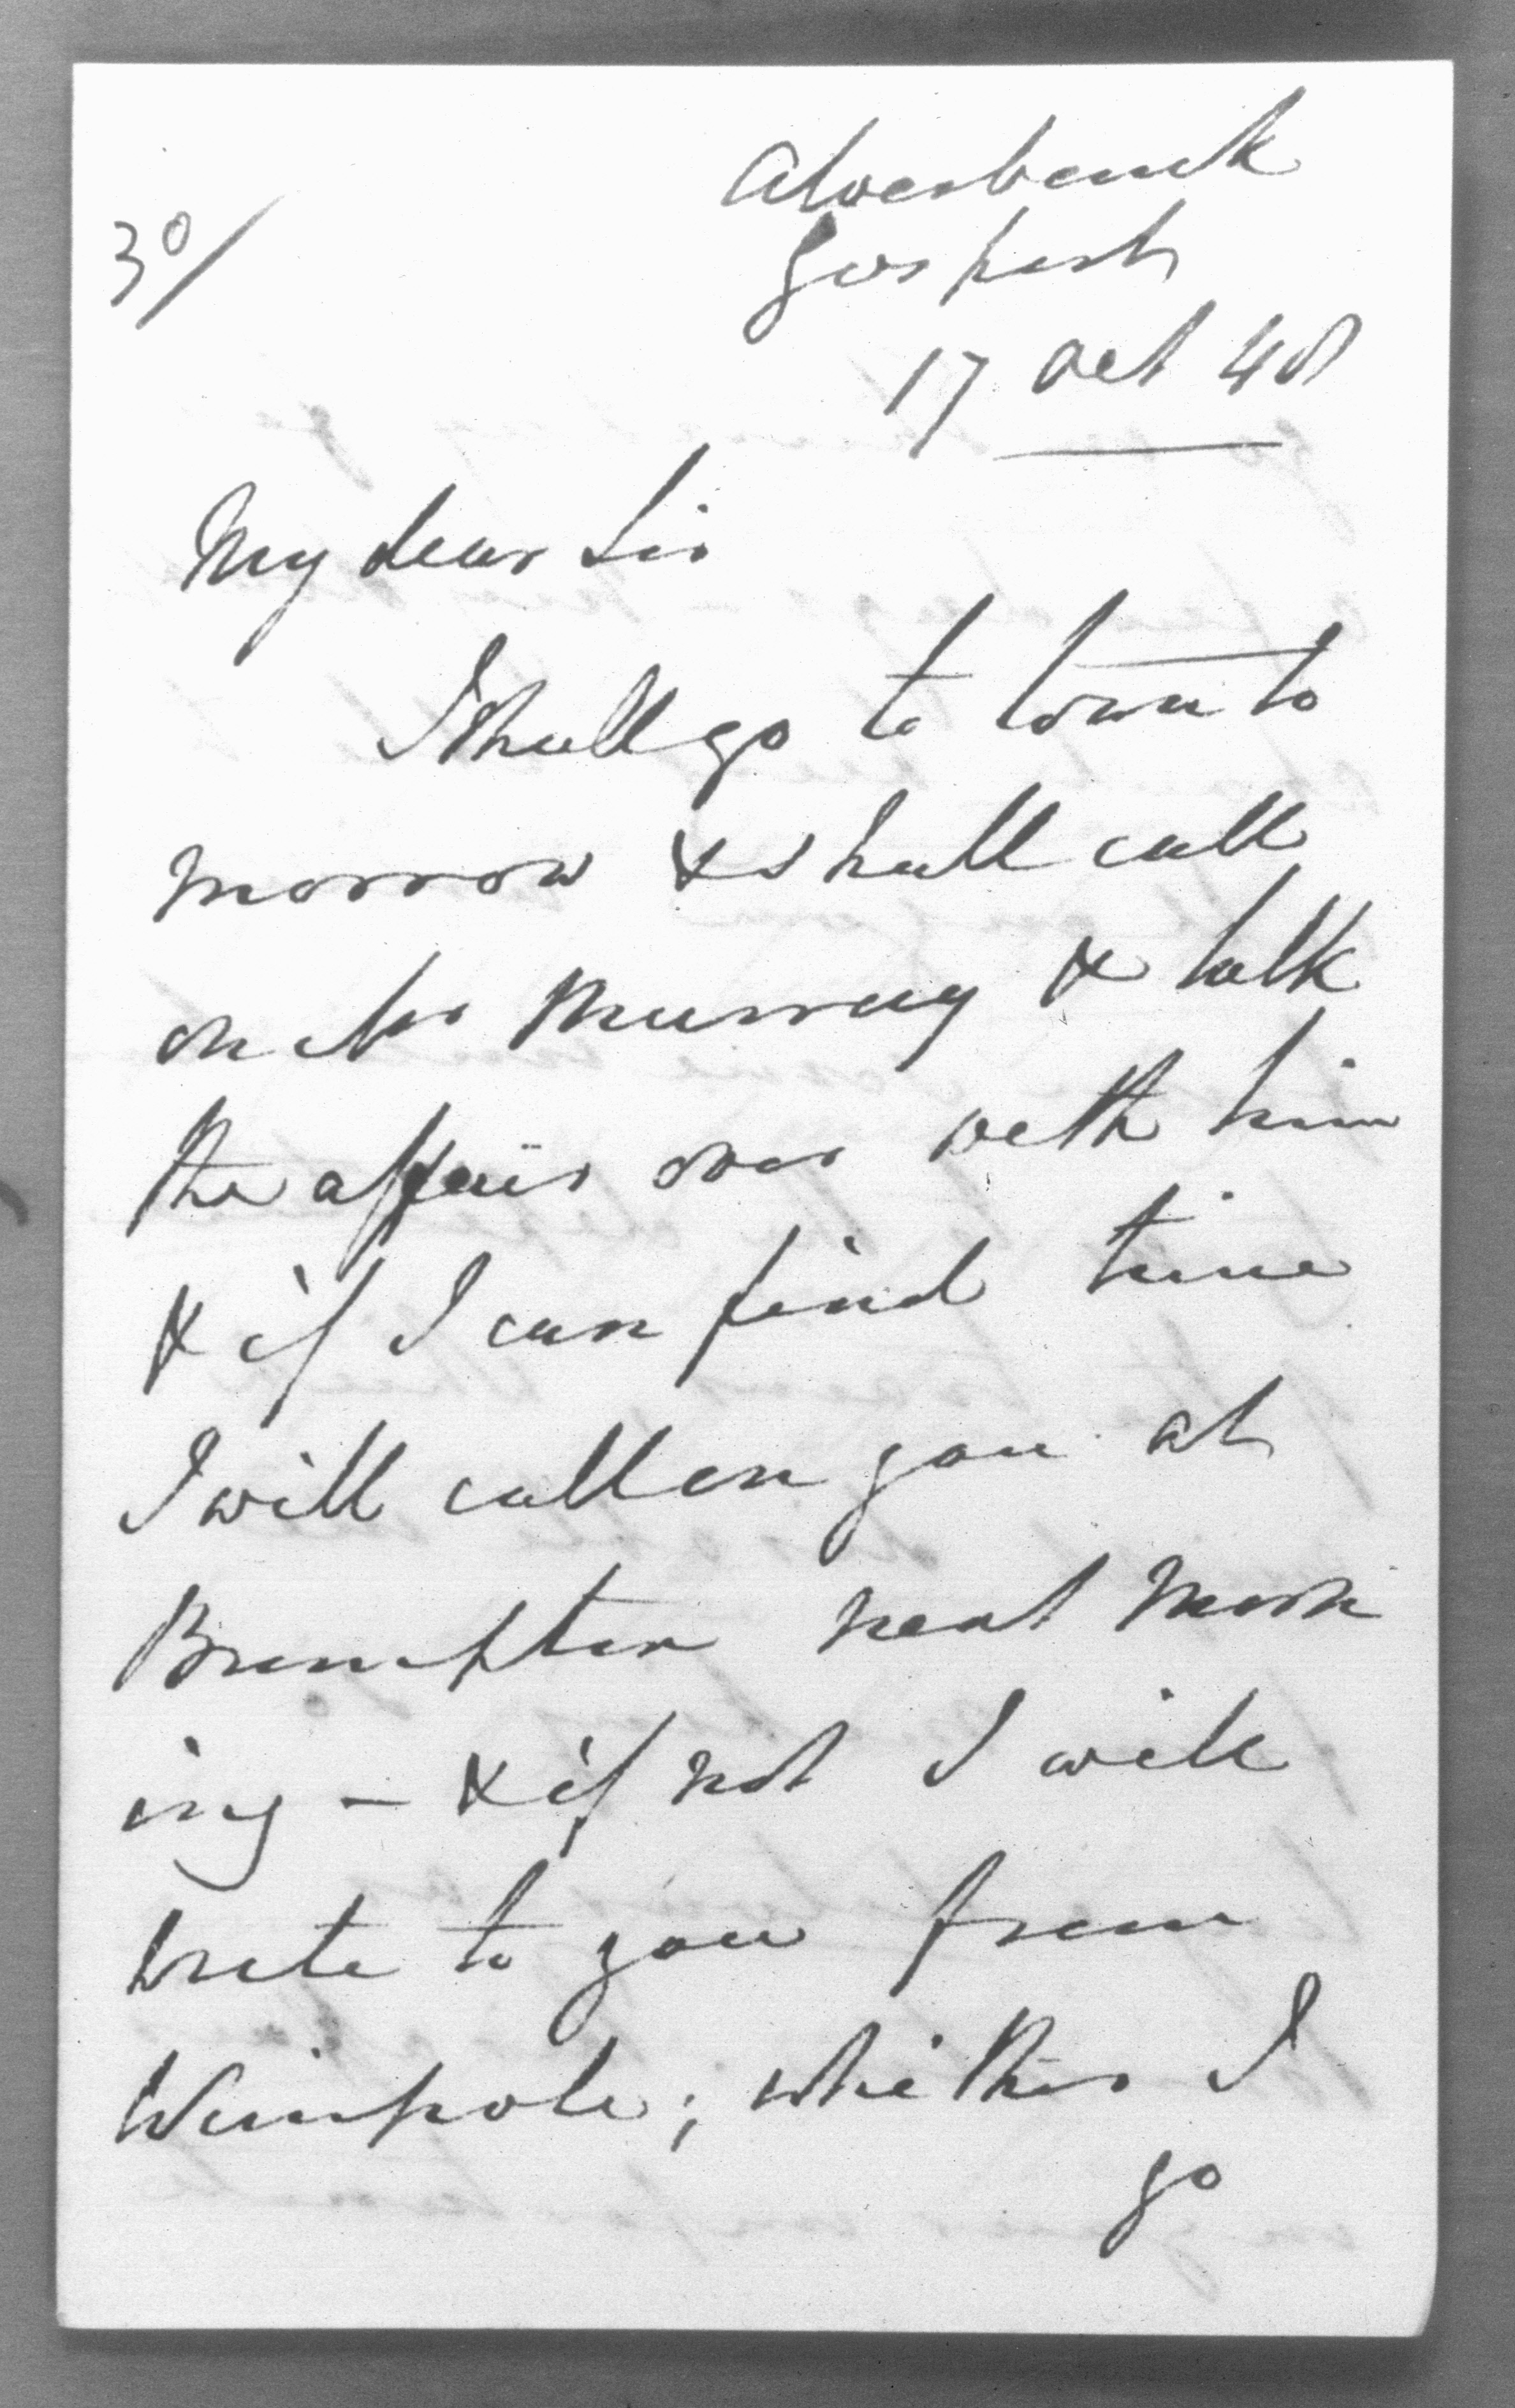 30/
Alverbank
Gosport
17 Oct 48
My dear Sir
I shall go to town to
morrow & shall call
on Mr Murray & talk
the affair over with him
& if I can find time
I will call on you at
Brompton next morn
ing - & if not I will
write to you from
Wimpole; whither I
go